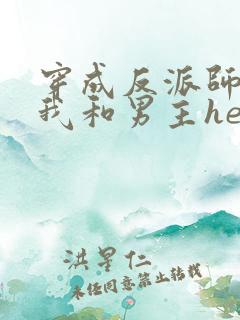 穿成反派師
我和男主he
洪星仁
未经同意禁止转载